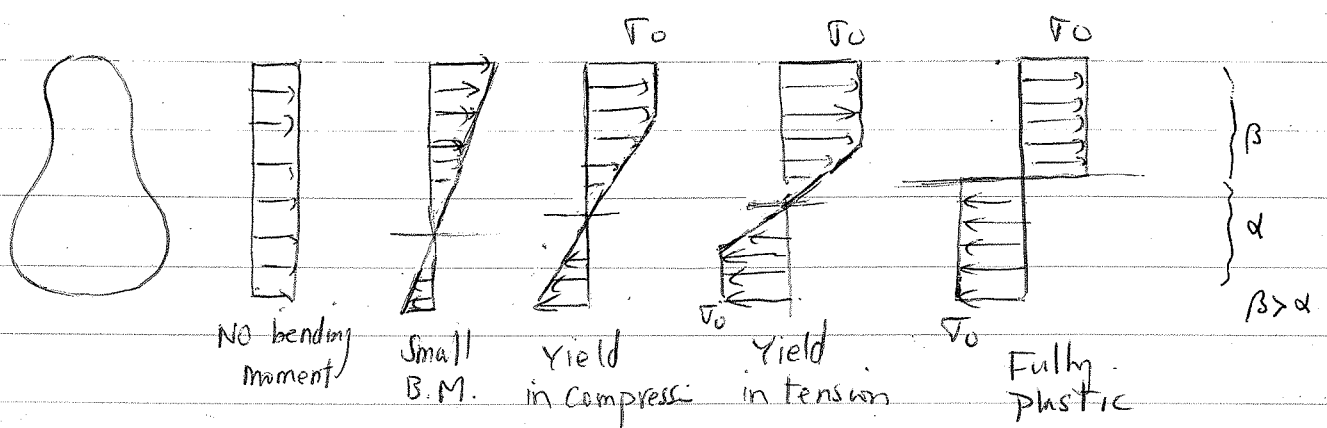 σ0 σ0 σ0
β
α
β>α
σ0 σ0
NO bending
moment
Small
B.M.
Yield
in compressi
Yield
in tension
Fully
plastic